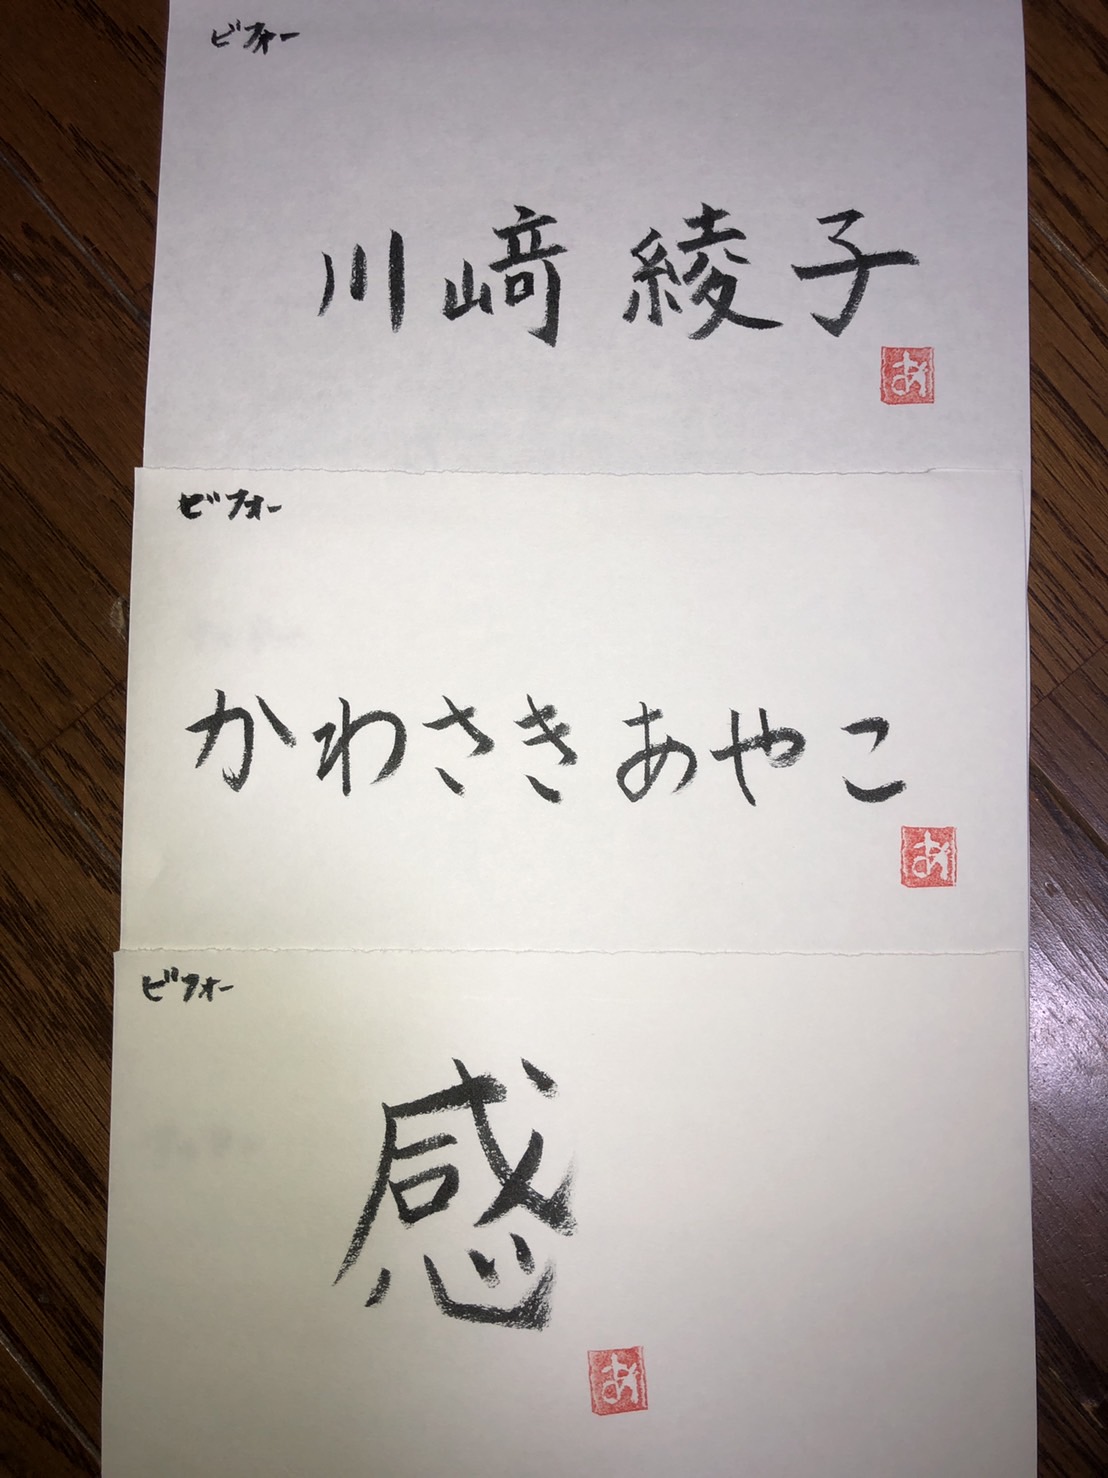 ビフォー
川﨑 綾子
あ
ビフォー
かわさきあやこ
あ
ビフォー
感
あ